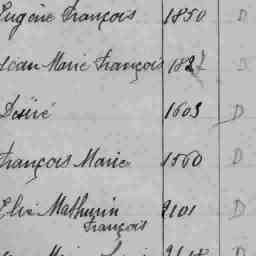 Eugène François 1850 D
Jean Marie François D
Désiré 1603 D
François Marie 1560 D
Elie Mathurin 2101 D
François